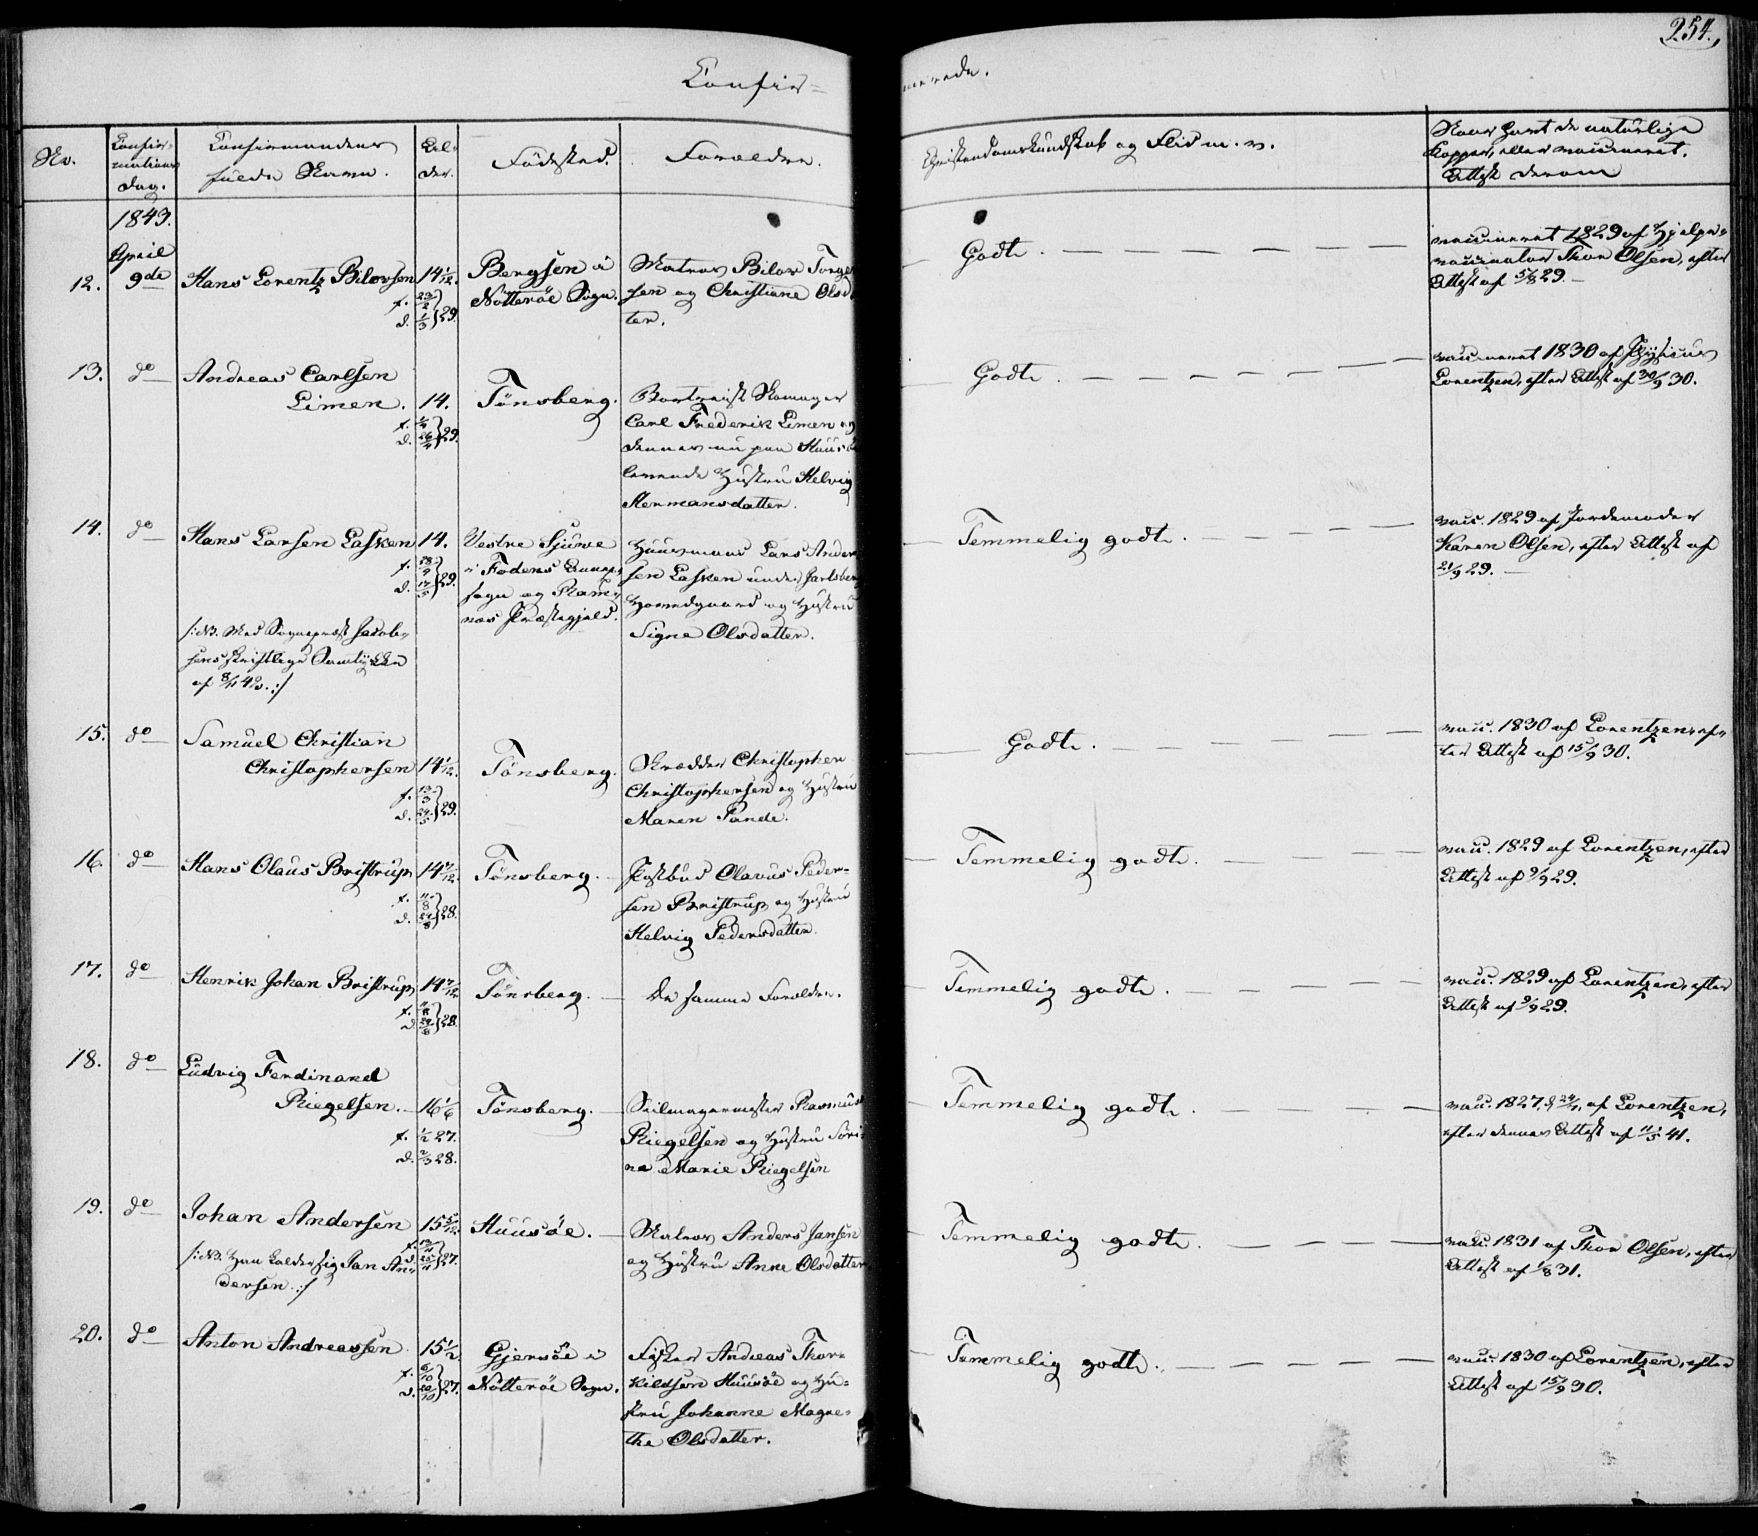 254.
Confir=
merede.
No.
Confir=
mations
Dag.
Confirmandens
fulde Navn.
Al-
der.
Födested.
Forældre.
Christendomskundskab og Flid m. v.
Naar havt de naturlige
Kopper, eller vaccineret.
Attest derom
1843.
April
12. 9de Hans Lorentz Bilovsen 14 1/12.
f. 23/2 } 29.
d. 1/3
Bergsen i
Nötteröe Sogn.
Matros Bilov Torge
sen og Christiane Olsd
ter.
Godt.
vaccineret 1829 af Hjelpe-
vaccinatør Thor Olsen, efter
Attest af 5/8 29.
13. do Andreas Carlsen
Limen. 14.
29.
Tönsberg.
Bortreist Skomager
Carl Frederik Limen og
dennes nu paa Huusö
levende Hustru Helvig
Hermansdatter.
Godt.
vaccineret 1830 af Physicus
Lorentzen, efter Attest af 30/9 30.
14. do Hans Larsen Lasken 14.
f. 18/4 } 29.
d. 17/5
/: NB. Med Sognepræst Jacob-
sens skriftlige Samtykke
af 8/4 43. :/
Vestre Sjurve
i Fodens Annex
sogn og Ramnæs
Præstegjeld.
Huusmand Lars Ander
sen Lasken under Jarlsberg
Hovedgaard og Hustru
Signe Olsdatter.
Temmelig godt.
vacc. 1829 af Jordemoder
Karen Olsen, efter Attest af
21/9 29.
15. do Samuel Christian
Christophersen 14 1/12.
f. 13/3 } 29.
d. 24/5
Tönsberg.
Skrædder Christopher
Christophersen og Hustru
Maren Pande.
Godt.
vacc. 1830 af Lorentzen, ef-
ter Attest af 15/9 30.
16. do Hans Olaus Bristrup 14 7/12.
f. 11/8 } 28.
d. 24/8
Tönsberg.
Postbud Olavus Peder-
sen Bristrup og Hustru
Helvig Pedersdatter.
Temmelig godt.
vacc. 1829 af Lorentzen, efter
Attest af 9/9 29.
17. do Henrik Johan Bristrup 14 7/12.
f. 11/8 } 28.
d. 24/8
Tönsberg.
De samme Forældre.
Temmelig godt.
vacc. 1829 af Lorentzen, efter
Attest af 9/9 29.
18. do Ludvig Ferdinand
Riegelsen. 16 1/6
f. 1/2 27.
d. 2/3 28.
Tönsberg.
Seilmagermester Rasmus
Riegelsen og Hustru Söri-
ne Marie Riegelsen
Temmelig godt.
vacc. 1827, d 24/7, af Lorentzen,
efter dennes Attest af 11/5 41.
19. do Johan Andersen 15 5/12.
f. 12/11 } 27.
d. 25/11
/: NB. Han kalder sig Jan An-
dersen. :/
Huusöe.
Matros Anders Jansen
og Hustru Anne Olsdatter
Temmelig godt.
vacc. 1831 af Thor Olsen, efter
Attest af 1/8 31.
20. do Anton Andreassen 15 1/2
f. 6/10 } 27.
d. 20/10
Gjersöe i
Nötteröe Sogn.
Fisker Andreas Thor-
kildsen Huusöe og Hu-
stru Johanne Magre-
the Olsdatter.
Temmelig godt.
vacc. 1830 af Lorentzen, efter
Attest af 15/9 30.